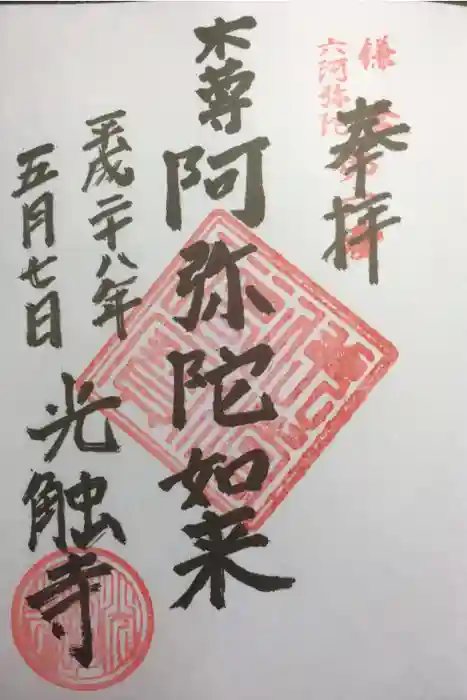 奉拝
六阿弥陀
本尊 阿弥陀如来
平成二十八年
五月七日
光触寺